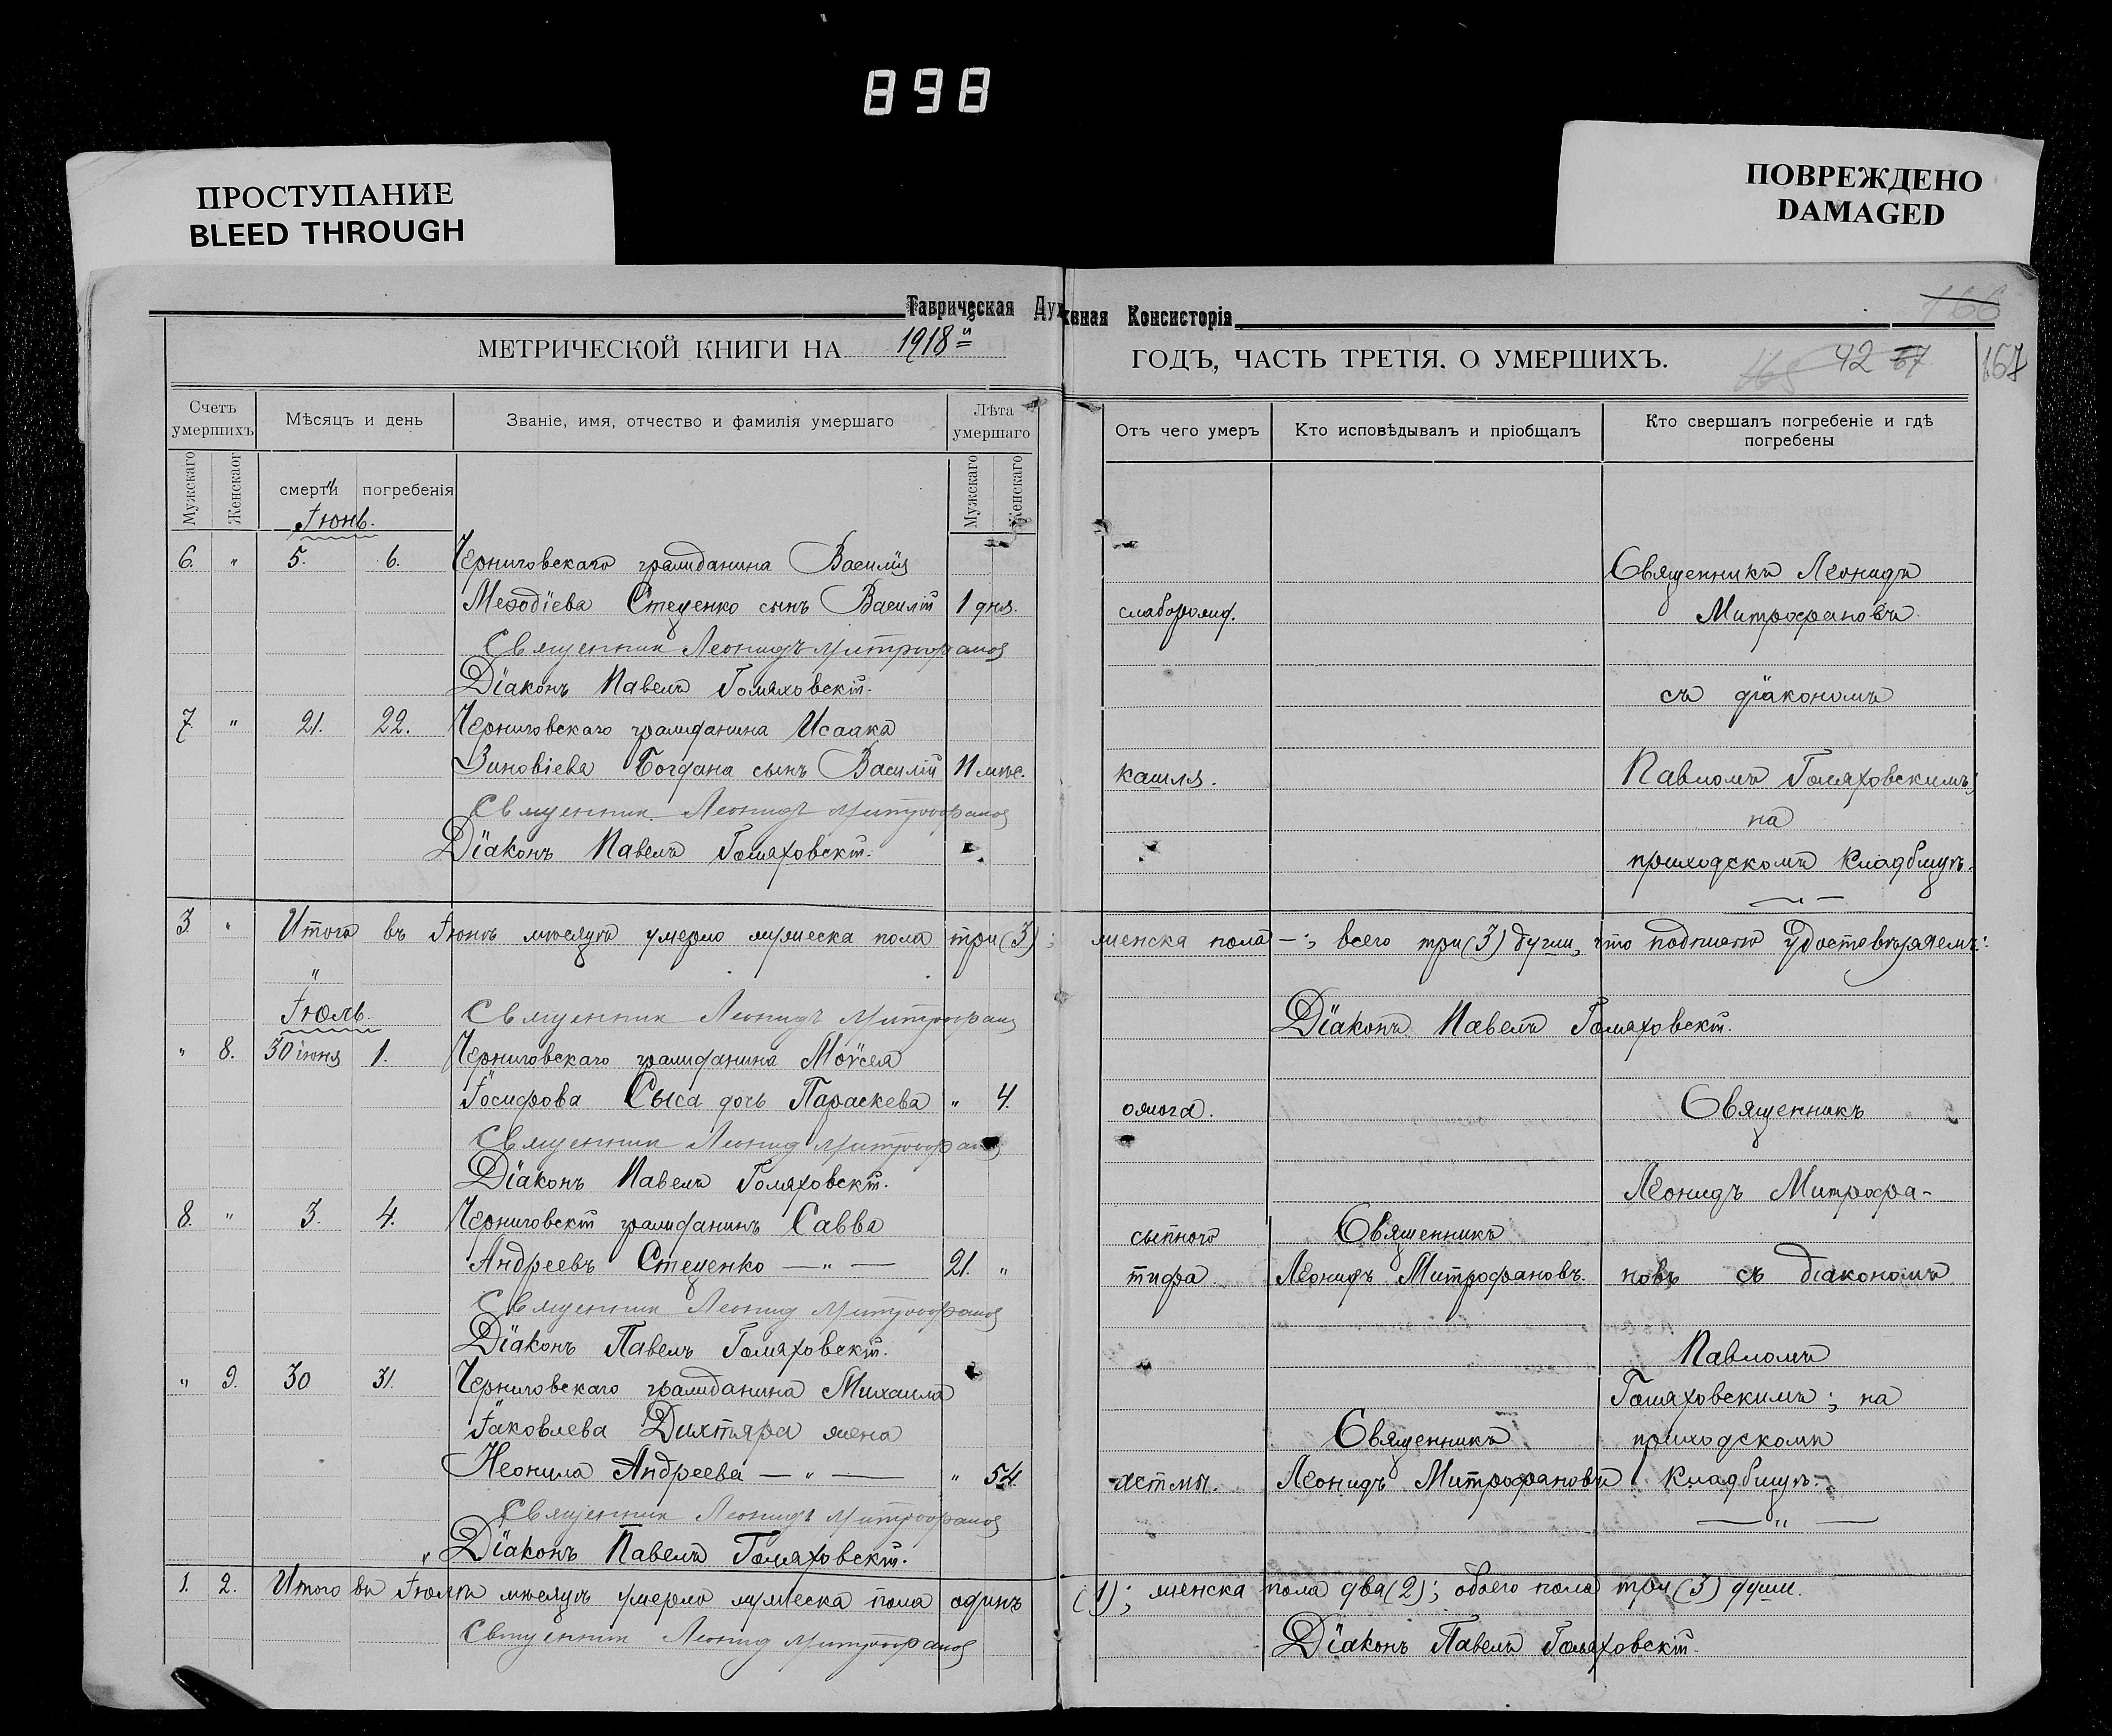 898
ПРОСТУПАНИЕ
BLEED THROUGH
ПОВРЕЖДЕНО
DAMAGED
Таврическая Духовная Консисторія
166
МЕТРИЧЕСКОЙ КНИГИ НА 1918й ГОДЪ, ЧАСТЬ ТРЕТІЯ. О УМЕРШИХЪ.
165 42 57 167
Счетъ умершихъ
Мѣсяцъ и день
Званіе, имя, отчество и фамилія умершаго
Лѣта умершаго
Отъ чего умеръ
Кто исповѣдывалъ и пріобщалъ
Кто свершалъ погребеніе и гдѣ погребены
Мужскаго
Женскаог
смерти
погребенія
Мужскаго
Женскаго
Іюнь.
6. " 5. 6. Черниговскаго гражданина Василія
Меѳодіева Стеценко сынъ Василій 1 дня. слаборожд.
Священникъ Леонидъ
Митрофановъ
Священник Леонидъ Митрофанов
Діаконъ Павелъ Голяховскій.
съ діакономъ
7. " 21. 22. Черниговскаго гражданина Исаака
Зиновіева Богдана сынъ Василій 11 мѣс. кашля.
Павломъ Голяховскимъ;
Священник Леонидъ Митрофанов
на
Діаконъ Павелъ Голяховскій.
приходскомъ кладбищѣ.
3. " Итого въ Іюнѣ мѣсяцѣ умерло мужеска пола три (3); женска пола —; всего три (3) души, что подписью удостовѣряемъ:
"
Іюль.
Священник Леонидъ Митрофанов
Діаконъ Павелъ Голяховскій.
" 8. 30 іюня 1. Черниговскаго гражданина Моѵсея
Іосифова Сыса дочь Параскева " 4. ожога.
Священникъ
Священник Леонид Митрофанов
Діаконъ Павелъ Голяховскій.
Леонидъ Митрофа-
8. " 3. 4. Черниговскій гражданинъ Савва
сыпного Священникъ
Андреевъ Стеценко — " — 21. " тифа. Леонидъ Митрофановъ. новъ съ діакономъ
Священник Леонид Митрофанов
Діаконъ Павелъ Голяховскій.
Павломъ
" 9. 30 31. Черниговскаго гражданина Михаила
Голяховскимъ; на
Іаковлева Дихтяра жена
Священникъ приходскомъ
Неонила Андреева — " — " 54. астмы. Леонидъ Митрофановъ кладбищѣ.
Священник Леонидъ Митрофанов
— " —
Діаконъ Павелъ Голяховскій.
1. 2. Итого въ Іюлѣ мѣсяцѣ умерло мужеска пола одинъ (1); женска пола два (2); обоего пола три (3) души.
Священник Леонид Митрофанов
Діаконъ Павелъ Голяховскій.